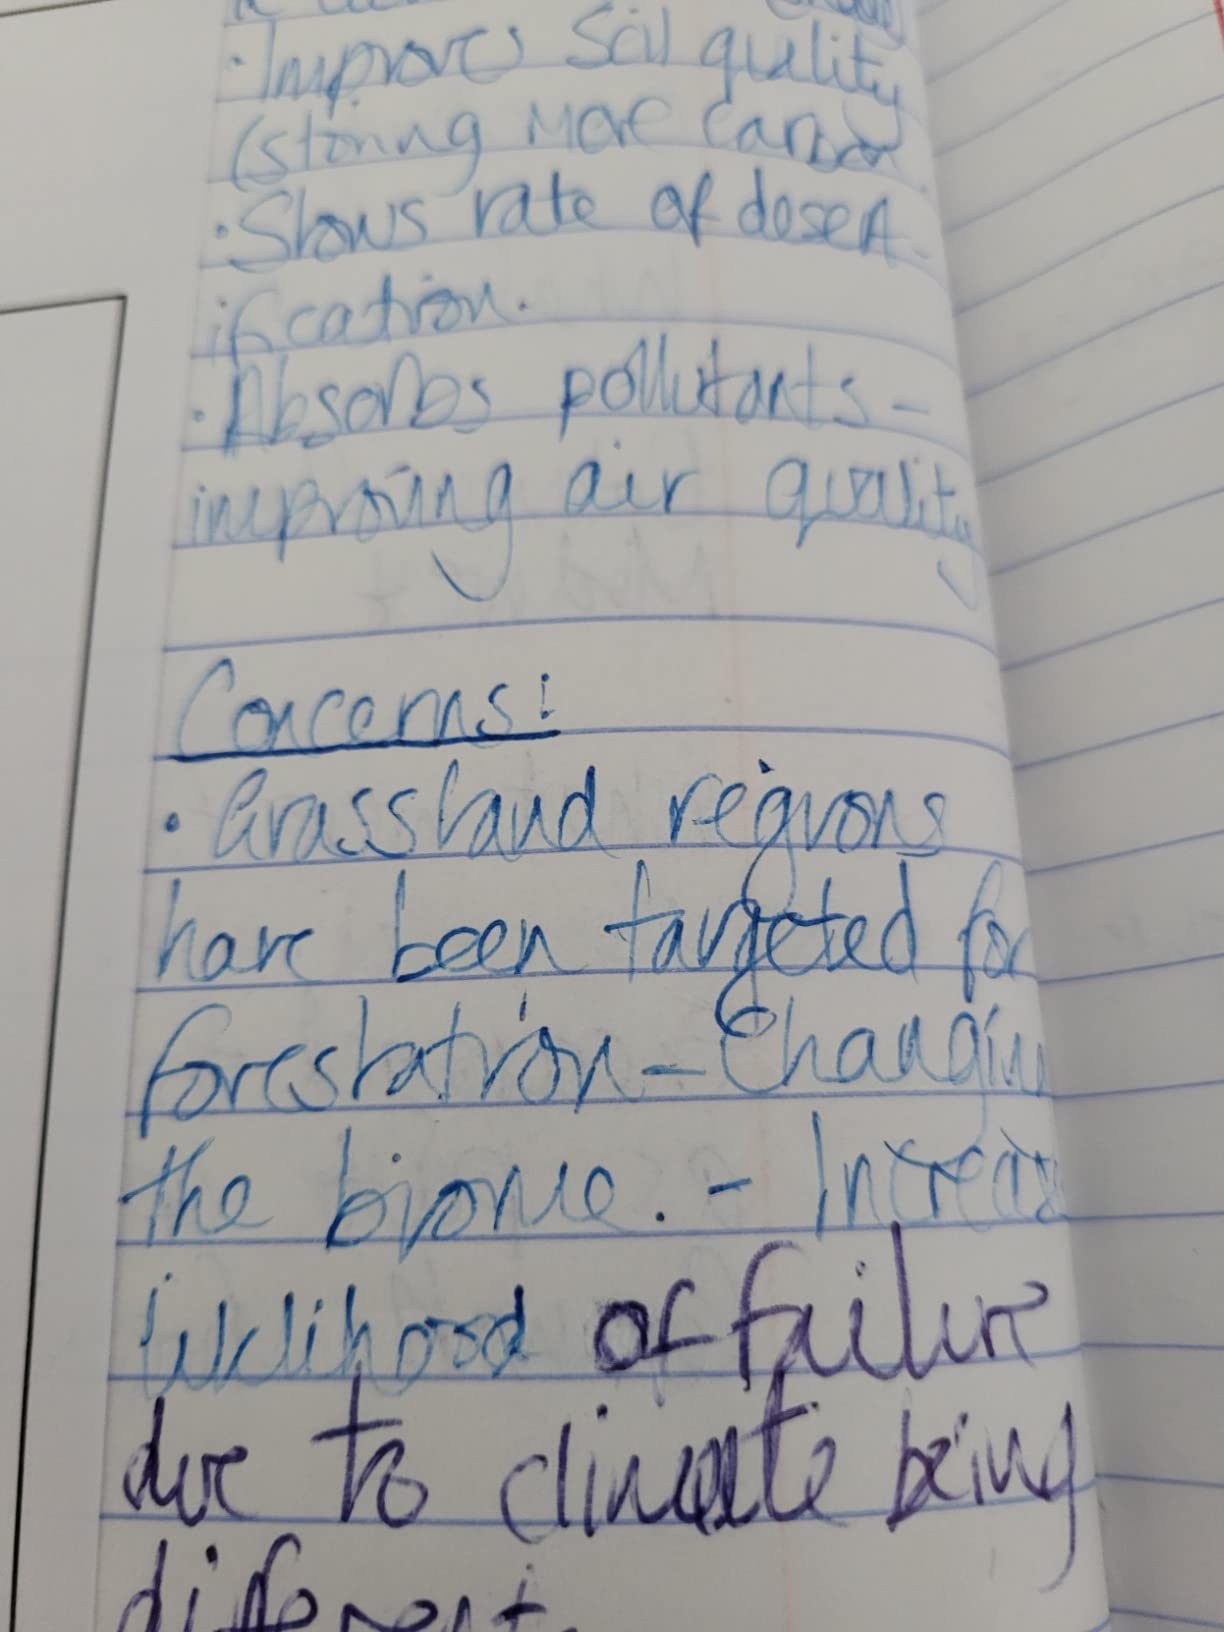 · Improves Soil qulity
(storing More carbon
· Slows rate of desert-
ification.
· Absorbs pollutants -
improving air quality
Concerns:
· Grassland regions
have been targeted for
forestation - Changing
the biome. - Increase
liklihood of failure
due to climate being
different.